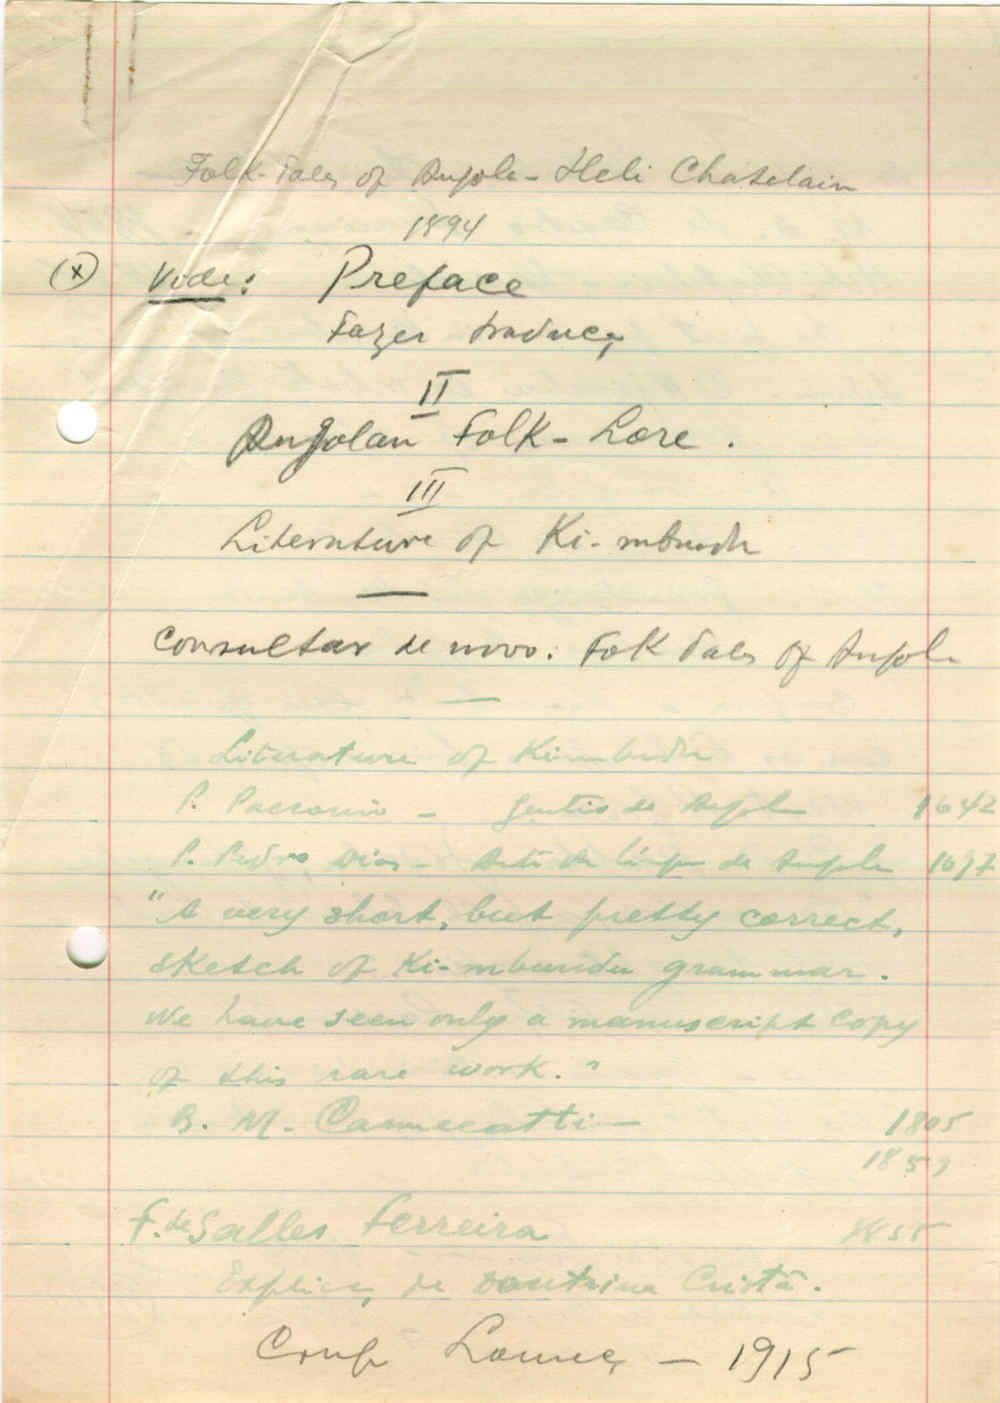 Folk-Tales of Angola - Heli Chatelain
1894
(x) Vide: Preface
Fazer traduc,
II
Angolan Folk-Lore.
III
Literature of Ki-mbundu
—
Consultar de novo: Fok Tales of Angola
—
Literature of Kimbundu
P. Pacconio - Gentio de Angola 1642
P. Pedro Dias - Arte da língua de Angola 1697
"A very short, but pretty correct,
sketch of Ki-mbundu grammar.
We have seen only a manuscript copy
of this rare work."
B. M. Cannecatti - 1805
1859
F. de Salles Ferreira 1855
Explicaç, de Doutrina Cristã.
1915